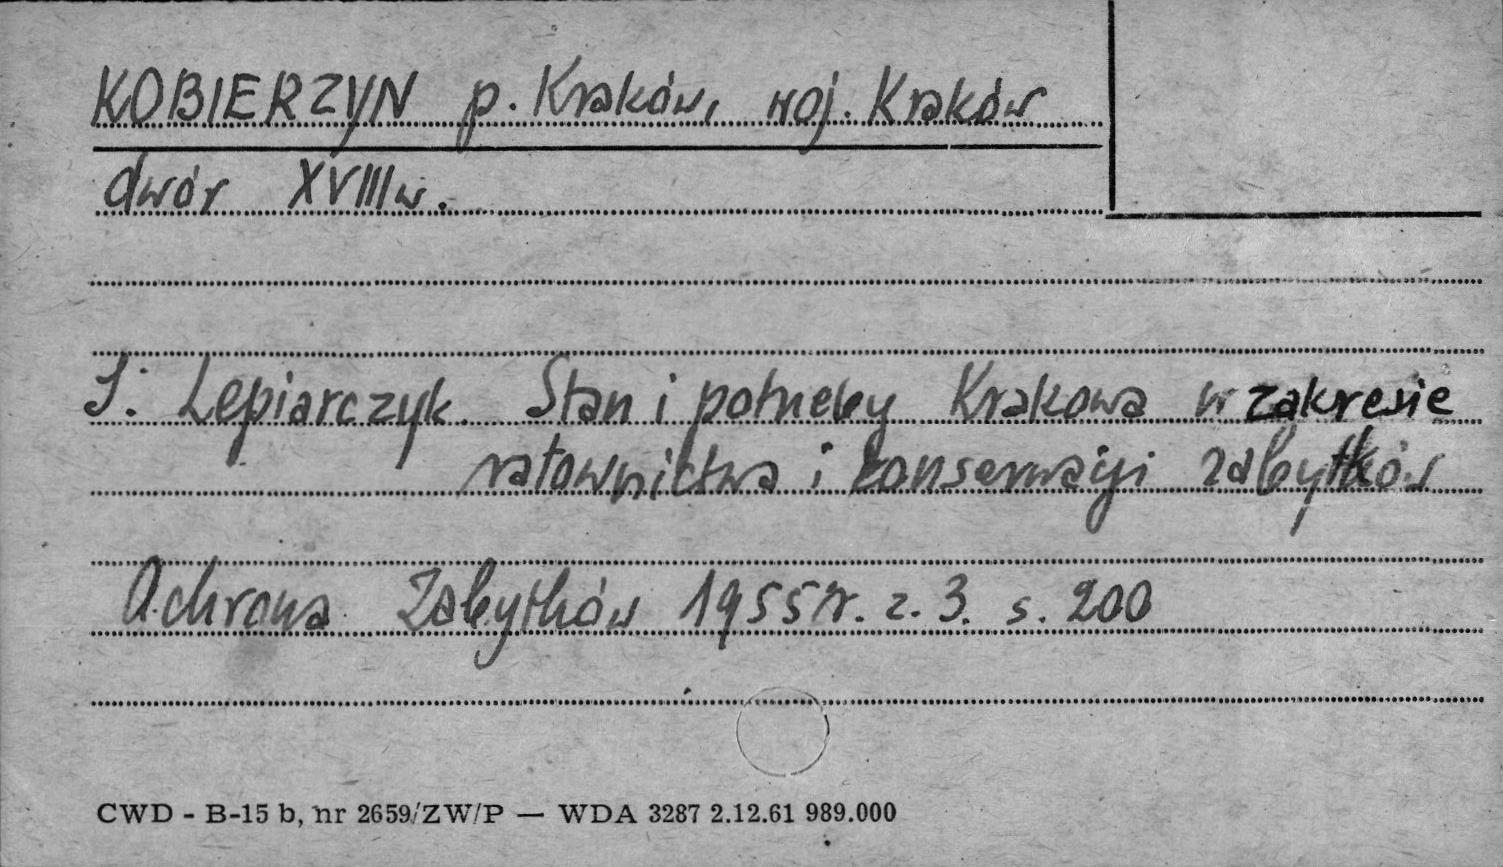 KOBIERZYN p. Kraków, woj. Kraków
dwór XVIII w.
J. Lepiarczyk. Stan i potrzeby Krakowa w zakresie
ratownictwa i konserwacji zabytków
Ochrona Zabytków 1955 r. z. 3. s. 200
CWD - B-15 b, nr 2659/ZW/P — WDA 3287 2.12.61 989.000